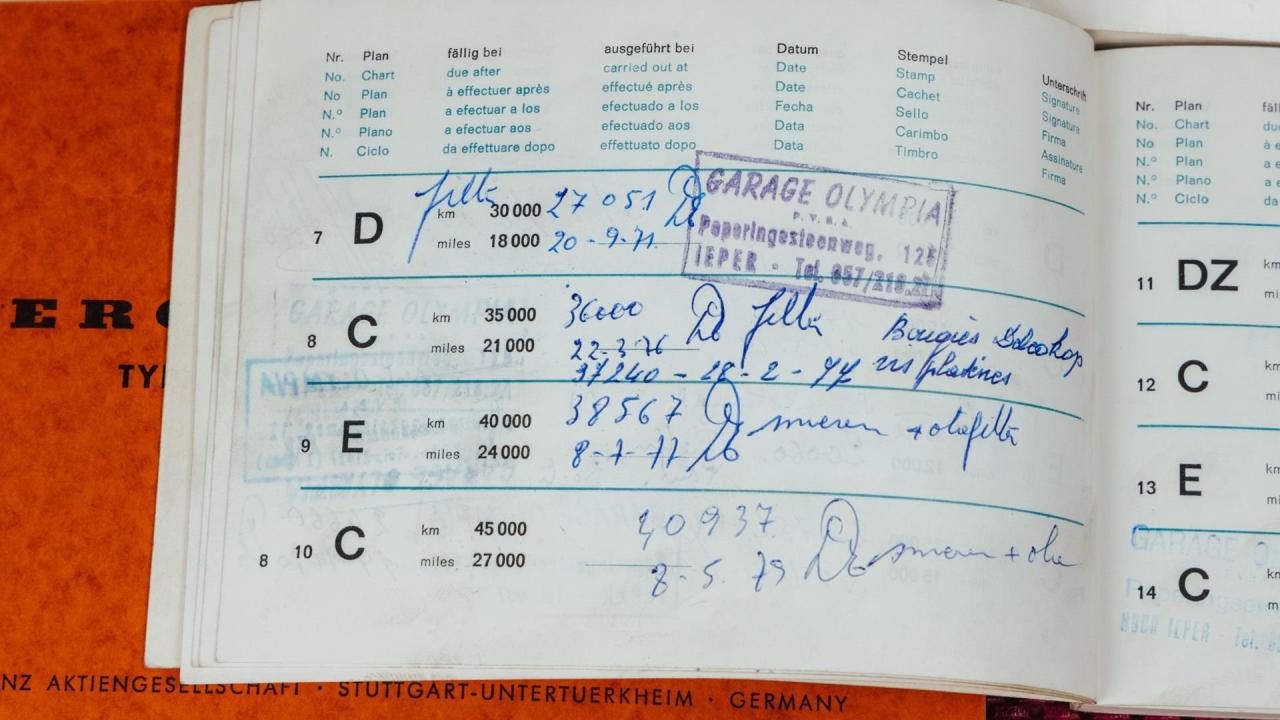 Nr. Plan fällig bei ausgeführt bei Datum Stempel Unterschrift
No. Chart due after carried out at Date Stamp Signature
No Plan à effectuer après effectué après Date Cachet Signature
N.º Plan a efectuar a los efectuado a los Fecha Sello Firma
N.º Plano a efectuar aos efectuado aos Data Carimbo Assinatura
N. Ciclo da effettuare dopo effettuato dopo Data Timbro Firma
7 D km 30 000 27 051
miles 18 000 20-9-71
GARAGE OLYMPIA
P.V.B.A.
Poperingesteenweg,
IEPER - Tel.
8 C km 35 000 36000
miles 21 000 22-3-76
Bougies
37240 - 28-2-77 vis platinées
9 E km 40 000 38567 smeren + olie filter
miles 24 000 8-7-77
8 10 C km 45 000 40937 smeren + olie
miles 27 000 8-5.79
Nr. Plan
No. Chart
No Plan
N.º Plan
N.º Plano
N. Ciclo
11 DZ
12 C
13 E
14 C
GARAGE
IEPER - Tel.
ER
TY
NZ AKTIENGESELLSCHAFT · STUTTGART-UNTERTUERKHEIM · GERMANY